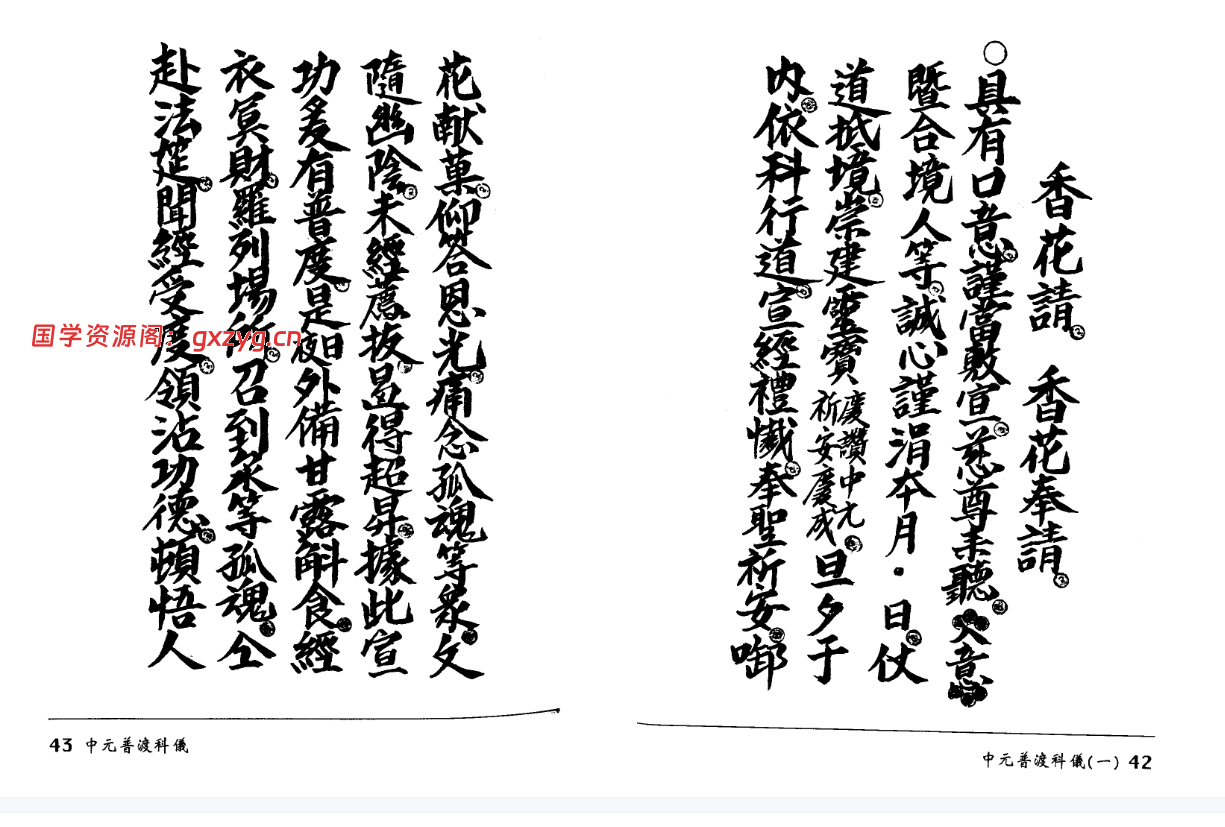 香花請 香花奉請
○具有口意謹當敷宣慈尊未聽入意
暨合境人等誠心謹涓本月・日仗
道抵境崇建靈寶慶讚中元祈安慶成旦夕于
內依科行道宣經禮懺奉聖祈安啣
中元普渡科儀(一) 42
花献菓仰答恩光痛念孤魂等眾久
隨幽陰未經薦拔曷得超昇據此宣
功多有普度是夜日外備甘露斛食經
衣冥財羅列場所召到來等孤魂仝
赴法筵聞經受度領沾功德頓悟人
43 中元普渡科儀
国学资源阁：gxzyg.cn